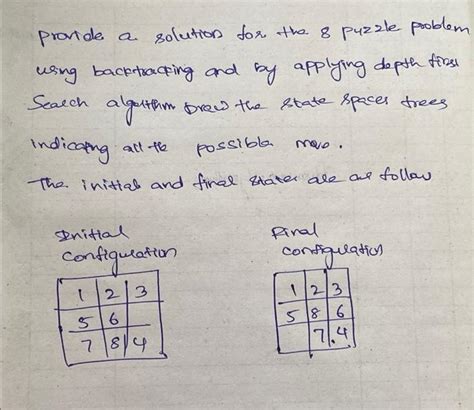 Provide a solution for the 8 puzzle problem
using backtracking and by applying depth first
Search algorithm Draw the state spaces trees
Indicating all the possible move.
The initial and final states are as follow
Initial
configuration
Final
configuration
1 2 3
5 6
7 8 4
1 2 3
5 8 6
7 4